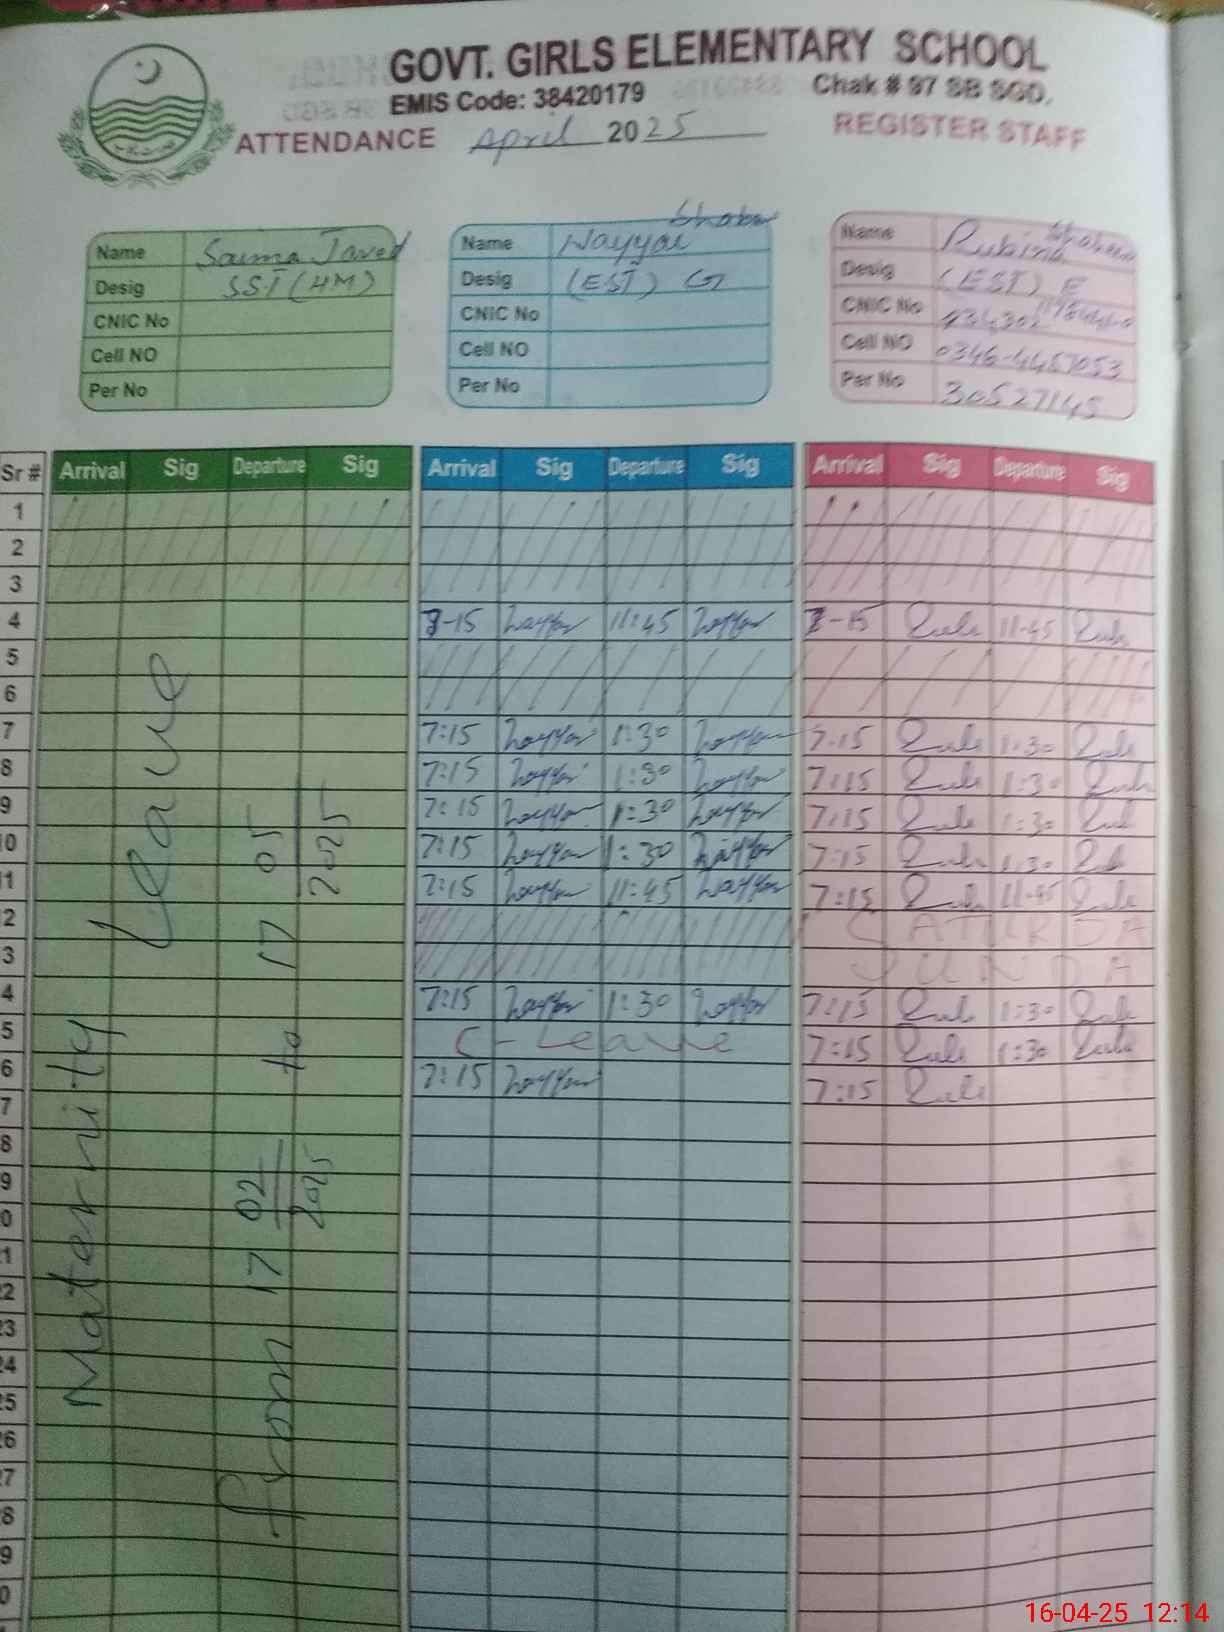 GOVT. GIRLS ELEMENTARY SCHOOL
EMIS Code: 38420179 Chak # 97 SB SGD.
ATTENDANCE April 2025 REGISTER STAFF
Name Saima Javed
Desig SST (HM)
CNIC No
Cell NO
Per No
Name Nayyar
Desig (EST) G
CNIC No
Cell NO
Per No
Name Rubina Shaheen
Desig (EST) E
CNIC No
Cell NO 0346-4457053
Per No 30527145
Sr # Arrival Sig Departure Sig Arrival Sig Departure Sig Arrival Sig Departure Sig
1
2
3
4 7-15 Nayyar 11:45 Nayyar 7-15 Rubi 11-45 Rubi
5
6
7 7:15 Nayyar 1:30 Nayyar 7:15 Rubi 1:30 Rubi
8 7:15 Nayyar 1:30 Nayyar 7:15 Rubi 1:30 Rubi
9 7:15 Nayyar 1:30 Nayyar 7:15 Rubi 1:30 Rubi
0 7:15 Nayyar 1:30 Nayyar 7:15 Rubi 1:30 Rubi
1 7:15 Nayyar 11:45 Nayyar 7:15 Rubi 11-45 Rubi
2 SATURDA
3 SUNDA
4 7:15 Nayyar 1:30 Nayyar 7:15 Rubi 1:30 Rubi
5 C-Leave 7:15 Rubi 1:30 Rubi
6 7:15 Nayyar 7:15 Rubi
7
8
9
0
1
22
23
24
25
26
27
8
9
0
Maternity Leave
from 17 02 2025 to 17 05 2025
16-04-25 12:14